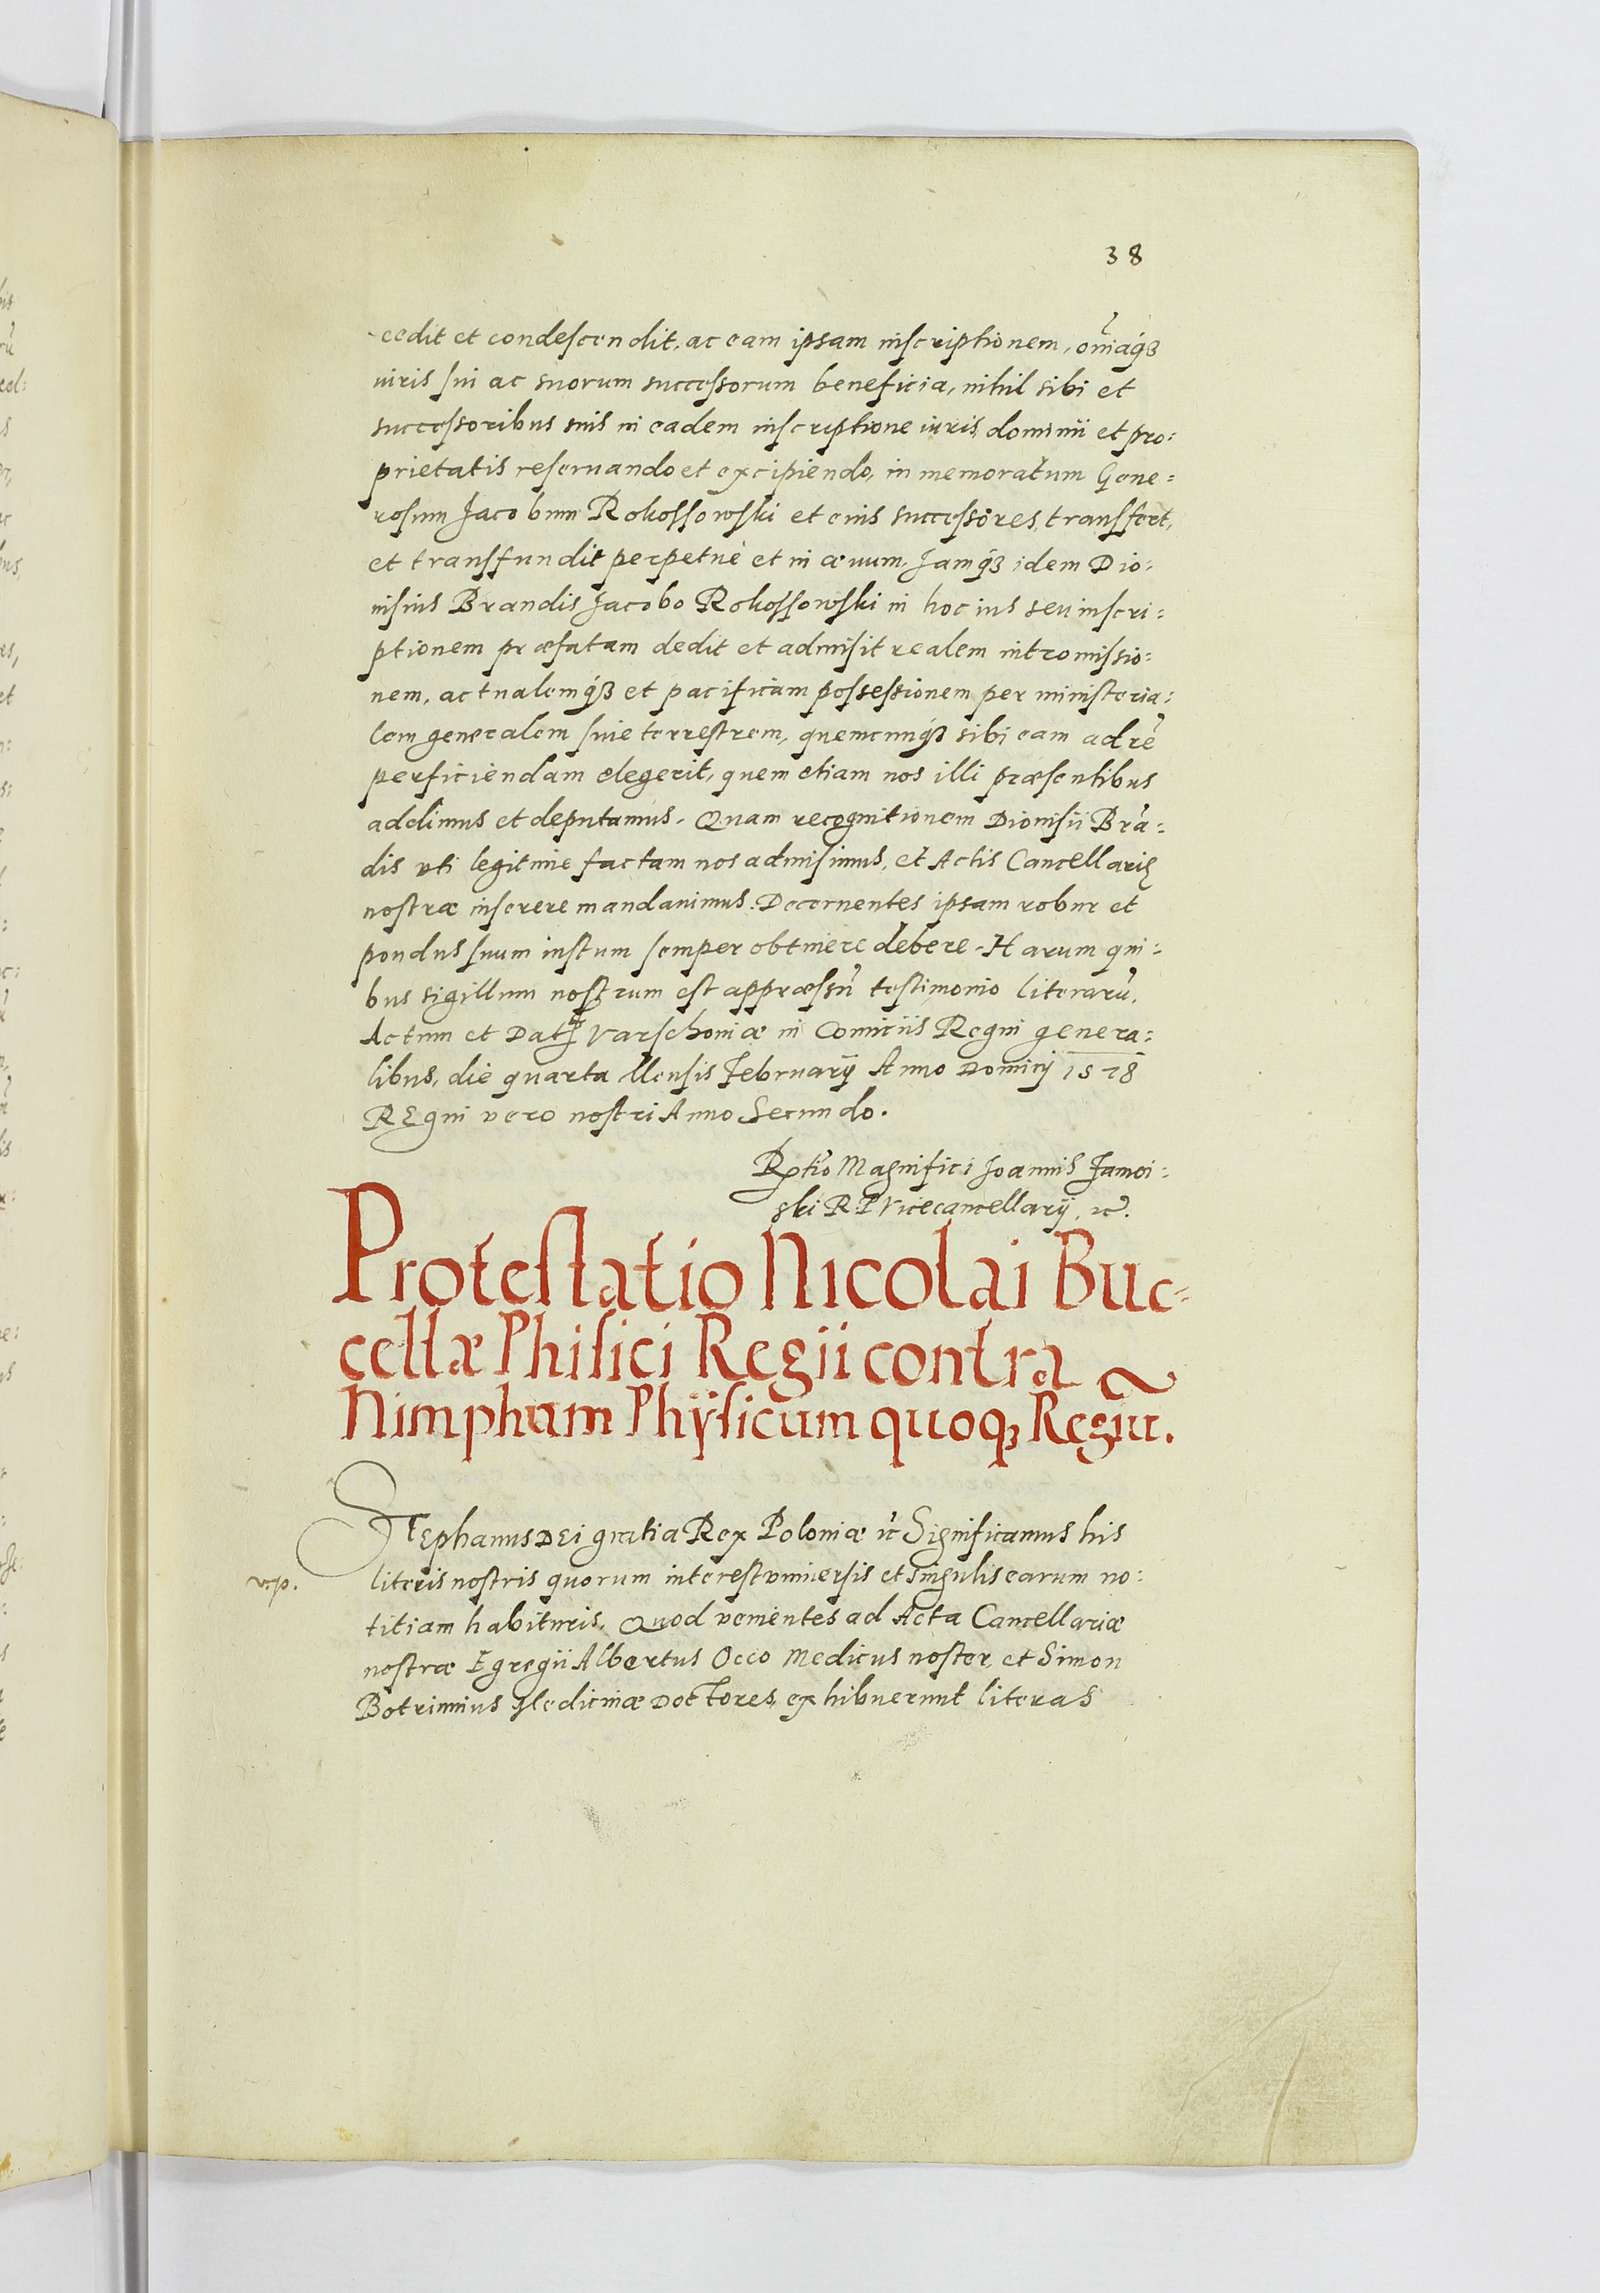 38
cedit et condescendit, ac eam ipsam inscriptionem, om̃iaq́ꝫ
iuris sui ac suorum successorum beneficia, nihil sibi et
successoribus suis in eadem inscriptione iuris dominii et pro:
prietatis reseruando et excipiendo, in memoratum Gene:
rosum Jacobum Rokossowski et eius successores, transfert,
et transfundit perpetuè et in æuum. Jamq́ꝫ idem Dio:
nisius Brandis Jacobo Rokossowski in hoc ius seu inscri:
ptionem præfatam dedit et admisit realem intromissio:
nem, actualemq́ꝫ et pacificam possessionem per ministeria:
lem generalem siue terrestrem, quemcunq́ꝫ sibi eam ad rẽ
perficiendam elegerit, quem etiam nos illi præsentibus
addimus et deputamus. Quam recognitionem Dionisii Brã:
dis vti legitime factam nos admisimus, et Actis Cancellarię
nostræ inserere mandauimus. Decernentes ipsam robur et
pondus suum iustum semper obtinere debere. Harum qui:
bus sigillum nostrum est appræssũ testimonio literarũ.
Actum et Dat Varschouiæ in Comitiis Regni genera:
libus, die quarta Mensis Februarij Anno Domini 1578
REgni vero nostri Anno Secundo.
Rptio Magnifici Joannis Zamoi:
ski R. P Vicecancellarij, ꝛc.
Protestatio Nicolai Buc=
cellæ Phisici Regii contra
Nimpham Phÿsicum quoqꝫ Regiũ.
STephanus DEi gratia Rex Poloniæ ꝛc Significamus his
literis nostris quorum interest vniuersis et singulis earum no:
titiam habituris. Quod venientes ad Acta Cancellariæ
nostræ Egregii Albertus Occo Medicus noster, et Simon
Botrinnius Medicinæ Doctores, exhibuerunt literas